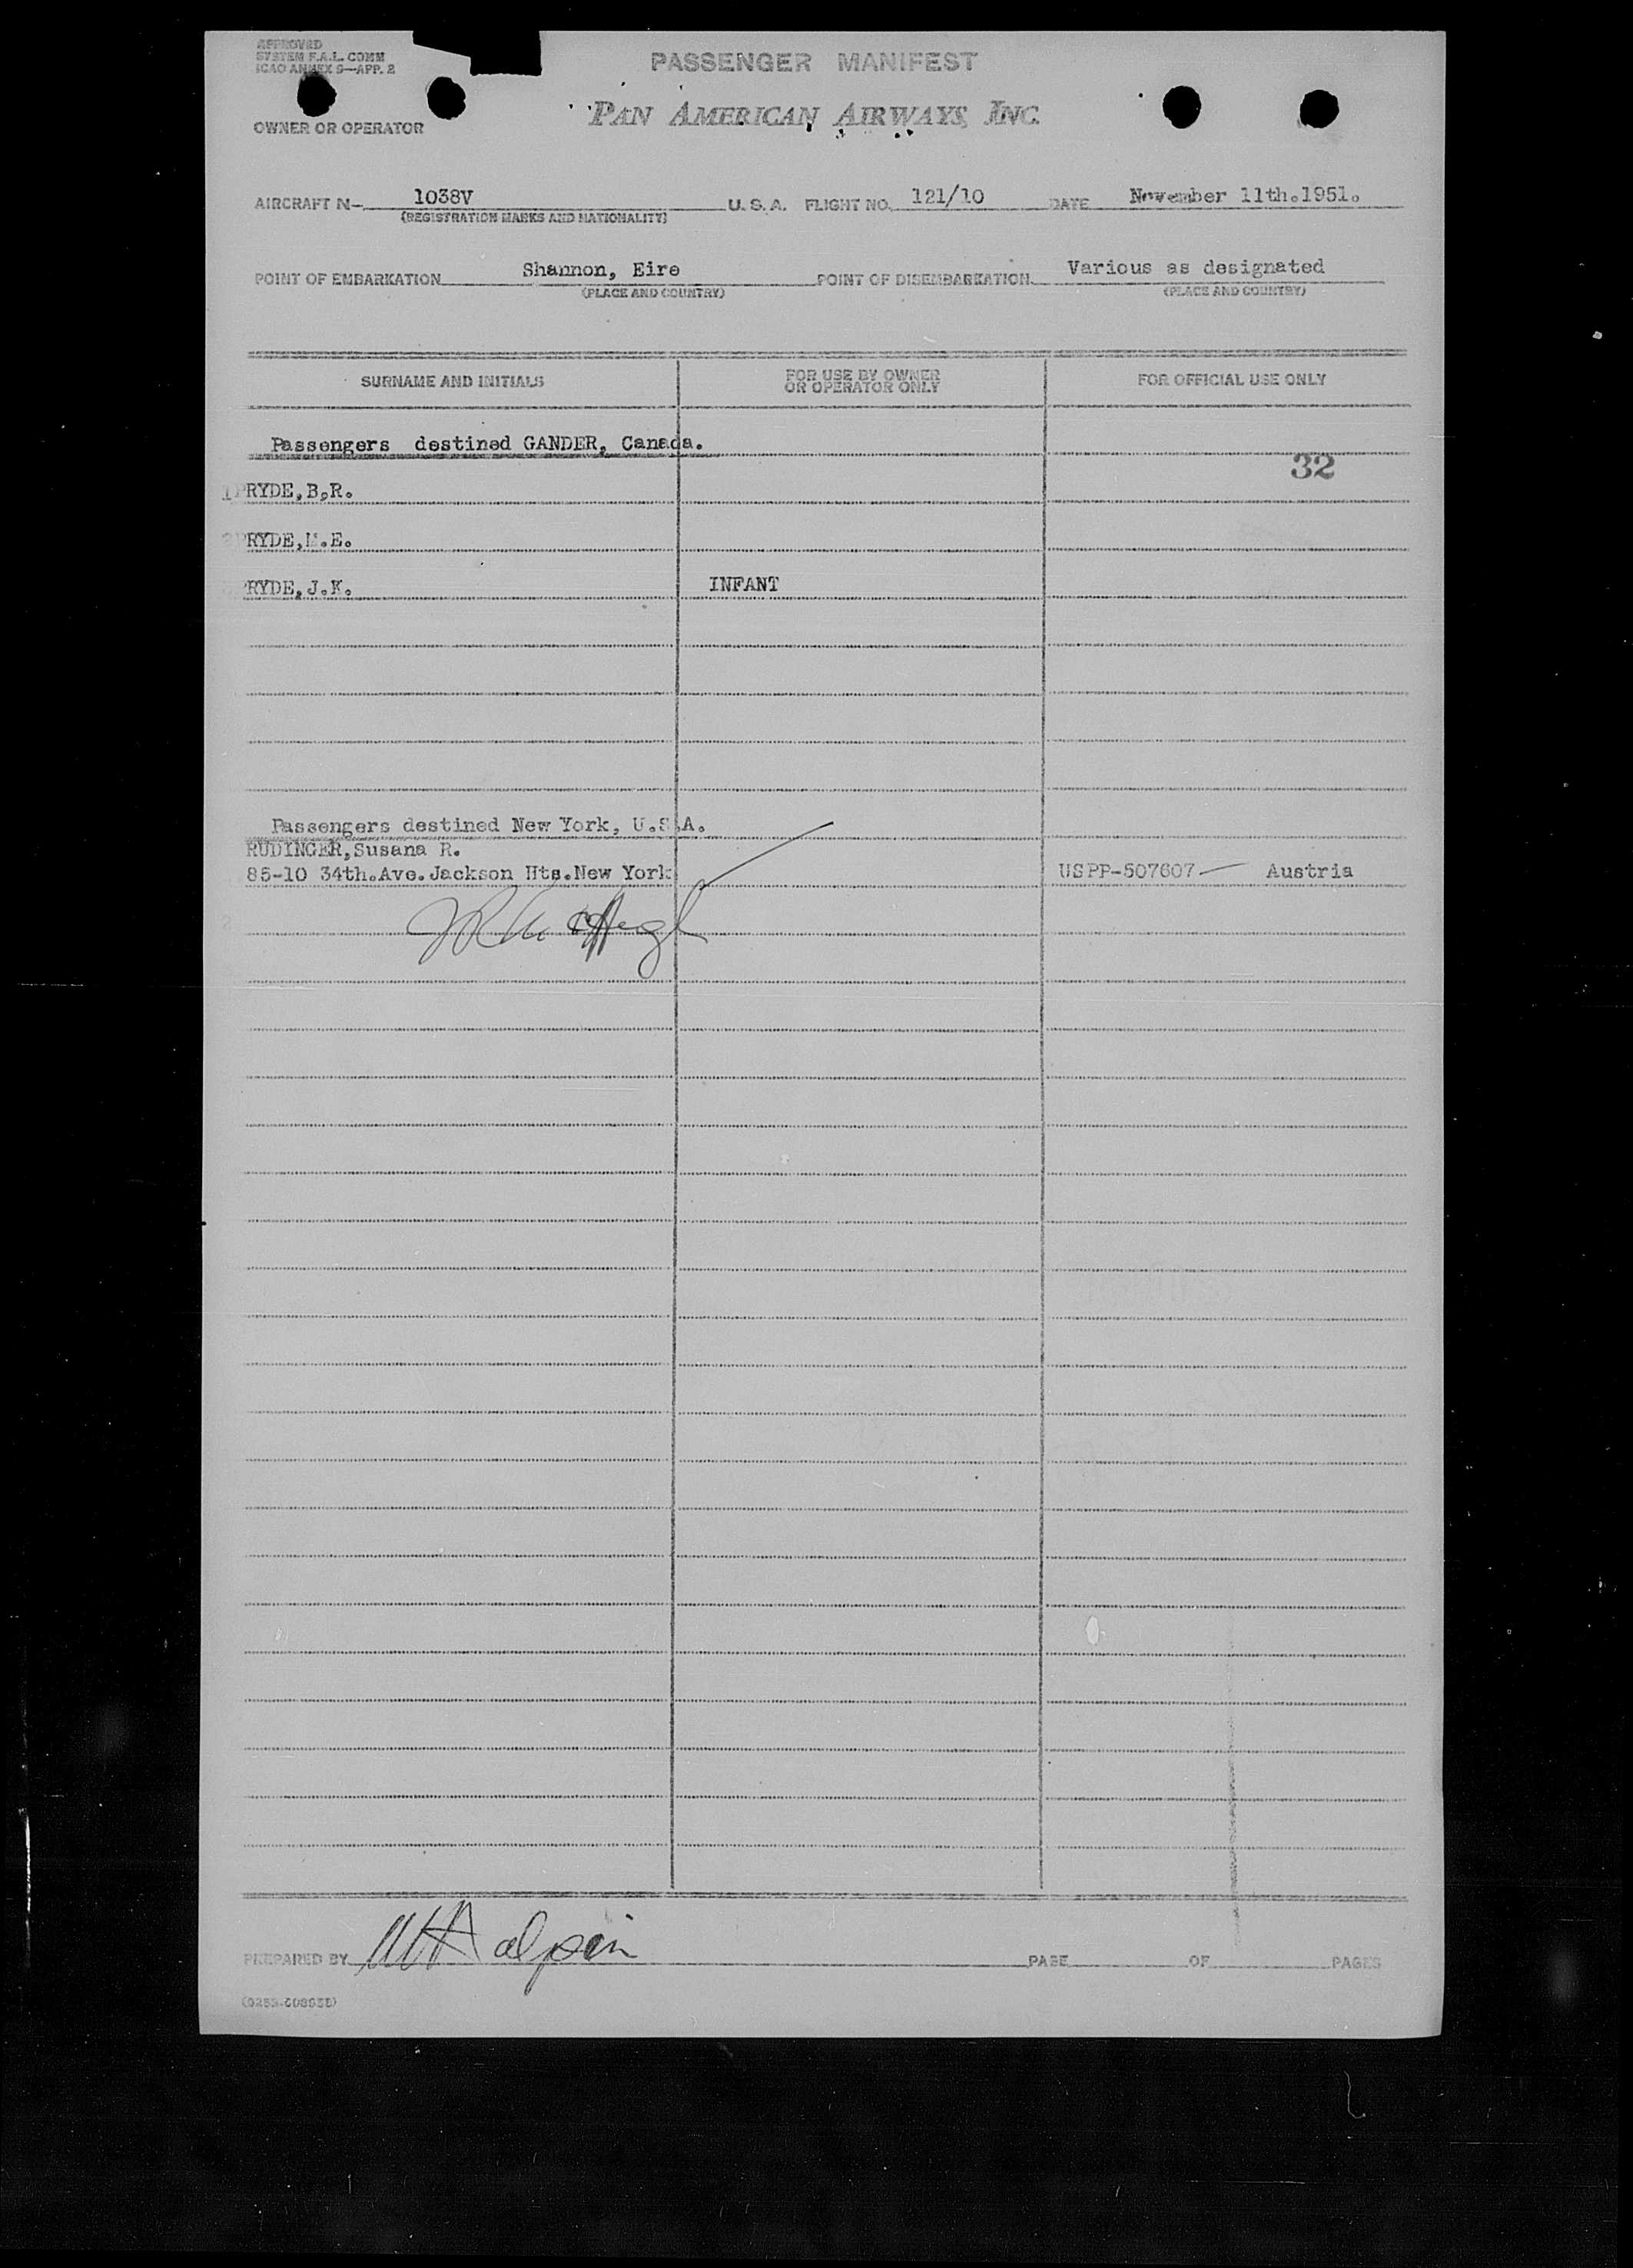 APPROVED
SYSTEM F.A.L. COMM
ICAO ANNEX 9—APP. 2
PASSENGER MANIFEST
PAN AMERICAN AIRWAYS, INC.
OWNER OR OPERATOR
AIRCRAFT N- 1038V U. S. A. FLIGHT NO. 121/10 DATE November 11th.1951.
(REGISTRATION MARKS AND NATIONALITY)
POINT OF EMBARKATION Shannon, Eire POINT OF DISEMBARKATION Various as designated
(PLACE AND COUNTRY) (PLACE AND COUNTRY)
SURNAME AND INITIALS FOR USE BY OWNER OR OPERATOR ONLY FOR OFFICIAL USE ONLY
Passengers destined GANDER, Canada.
32
1 PRYDE,B.R.
2 PRYDE,M.E.
3 PRYDE,J.K. INFANT
Passengers destined New York, U.S.A.
RUDINGER,Susana R.
85-10 34th.Ave.Jackson Hts.New York USPP-507607 — Austria
PREPARED BY MHalpin PAGE OF PAGES